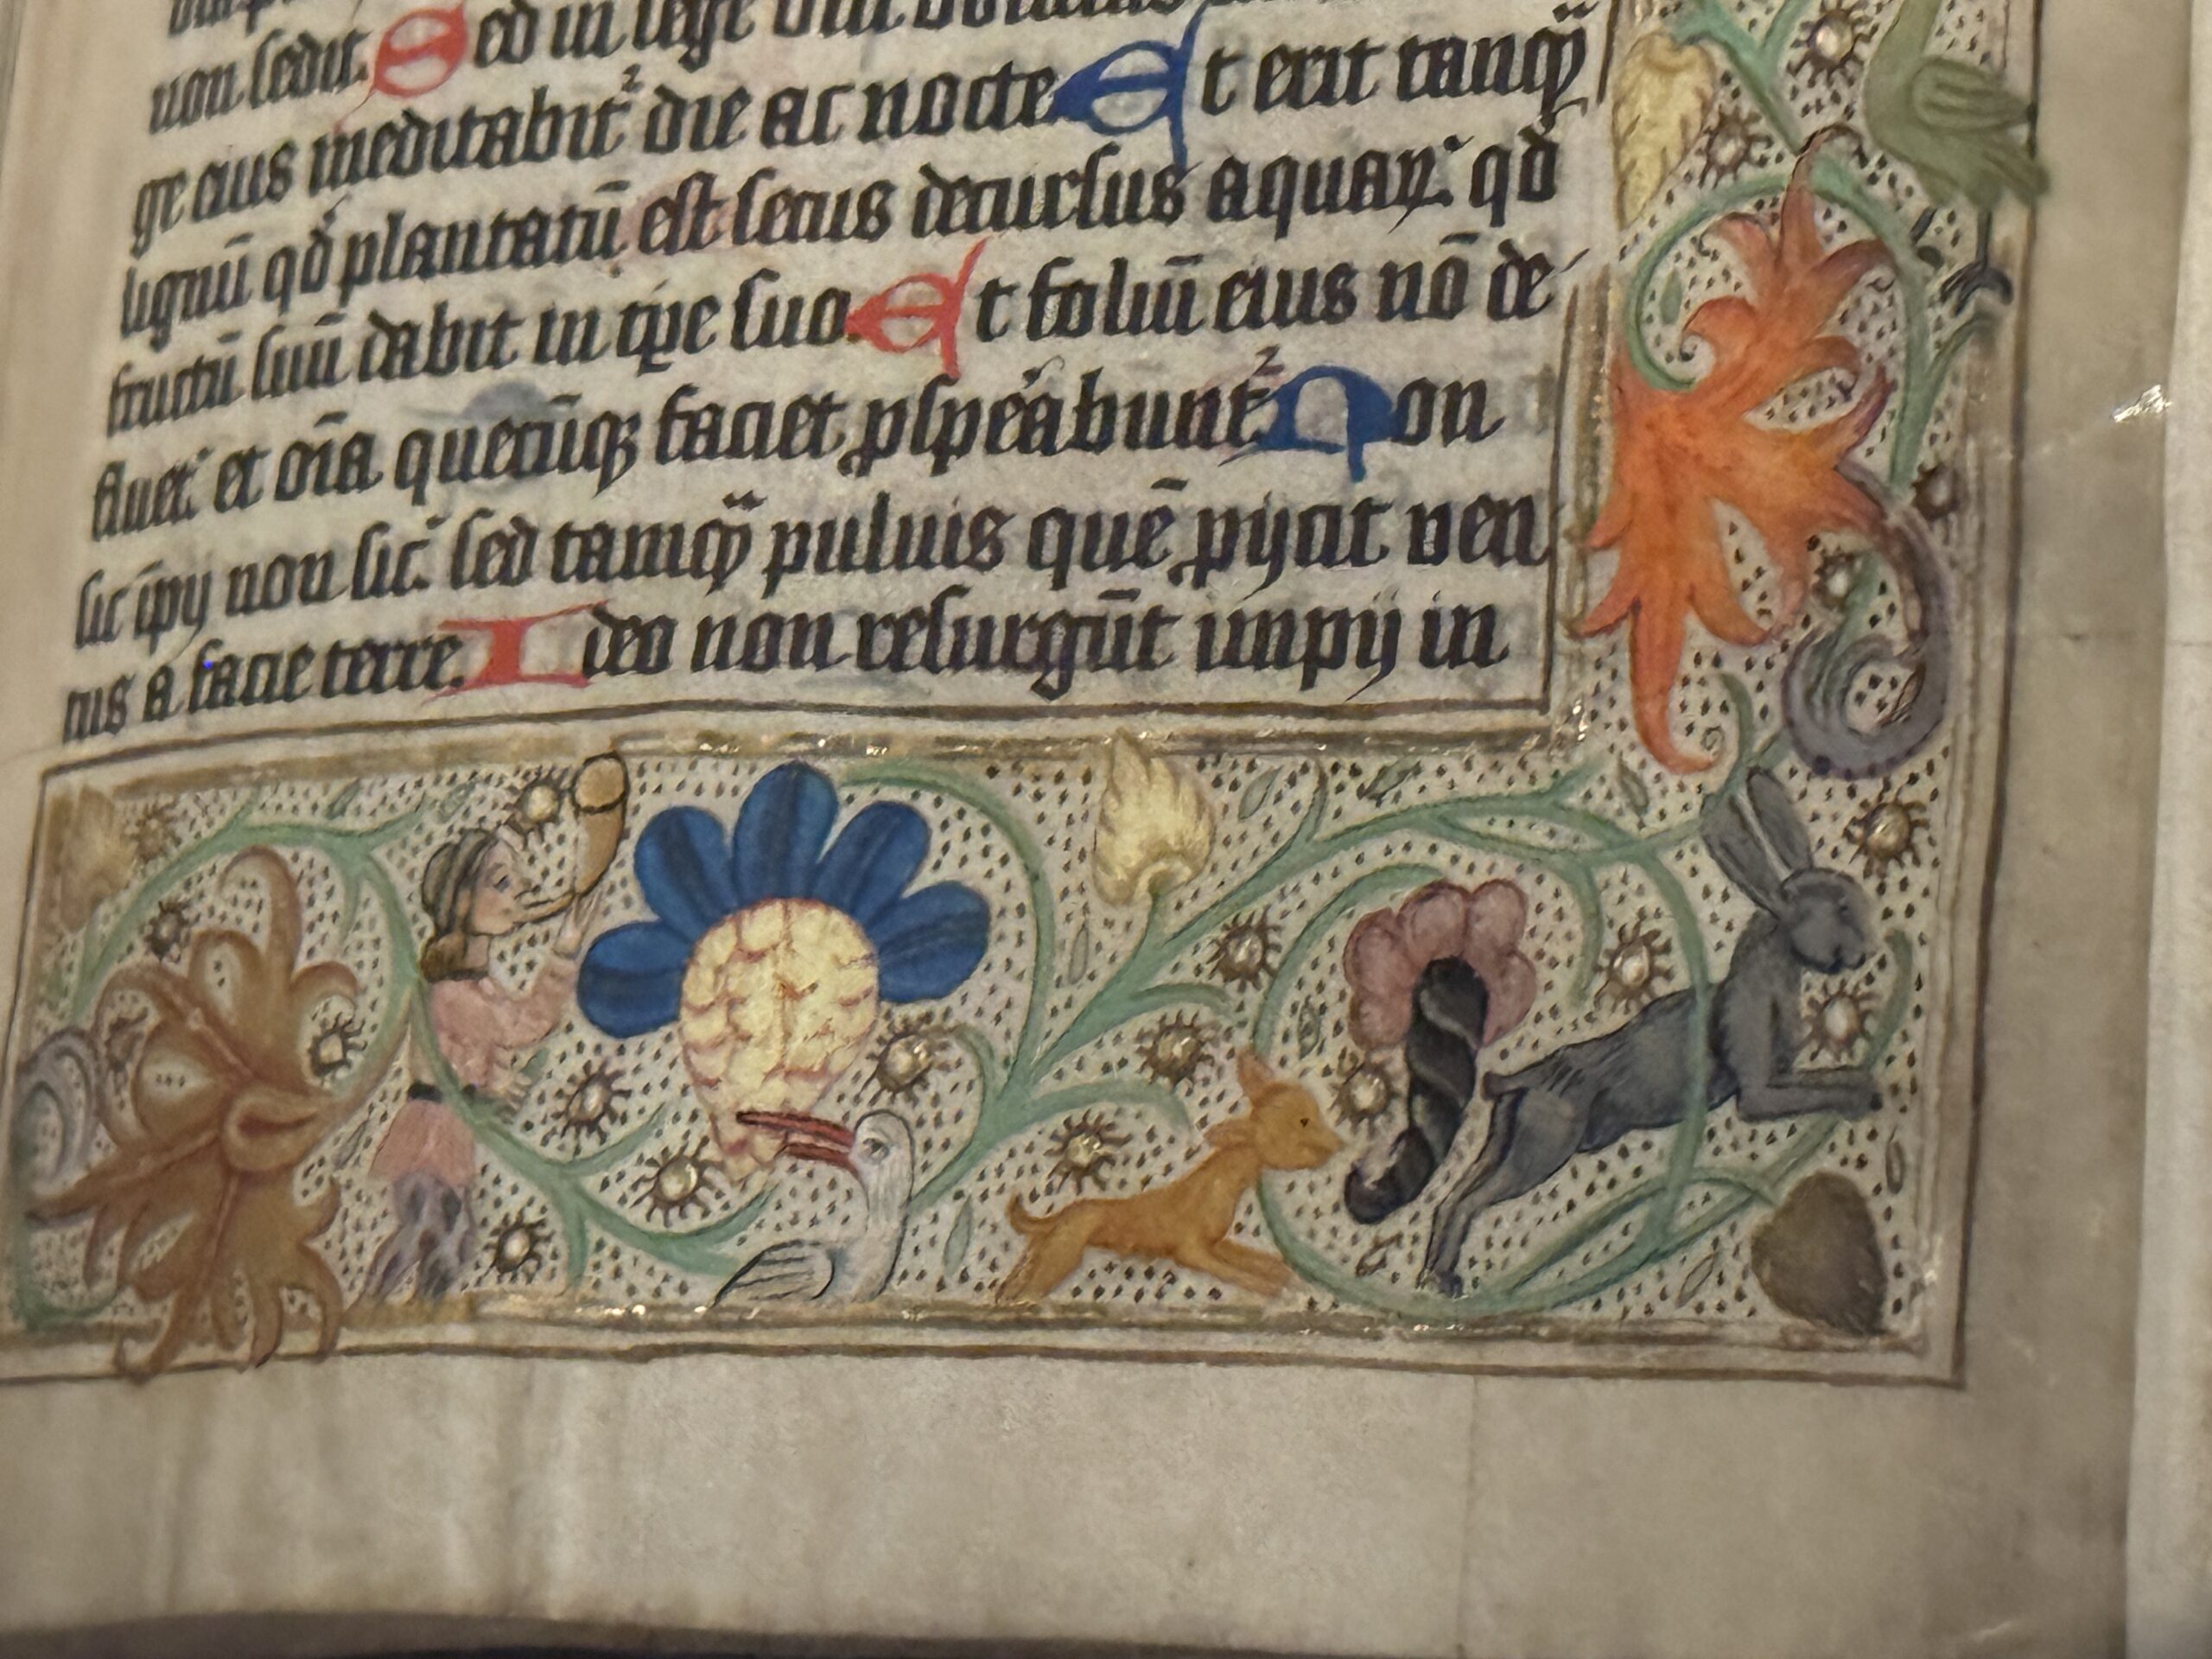 non sedit. Sed in lege dni voluntas
ge eius meditabit᷑ die ac nocte Et erit tanqͫ
lignū qd̕ plantatū est secus decursus aquaꝝ qd
fructū suū dabit in tp̄e suo. Et foliū eius nō de
fluet et oīa quecūqꝫ faciet ꝓsꝑabunt᷑ Non
sic īpij non sic. sed tamqͫ puluis quē ꝓijcit uen
tus a facie terre. Ideo non resurgūt impij in